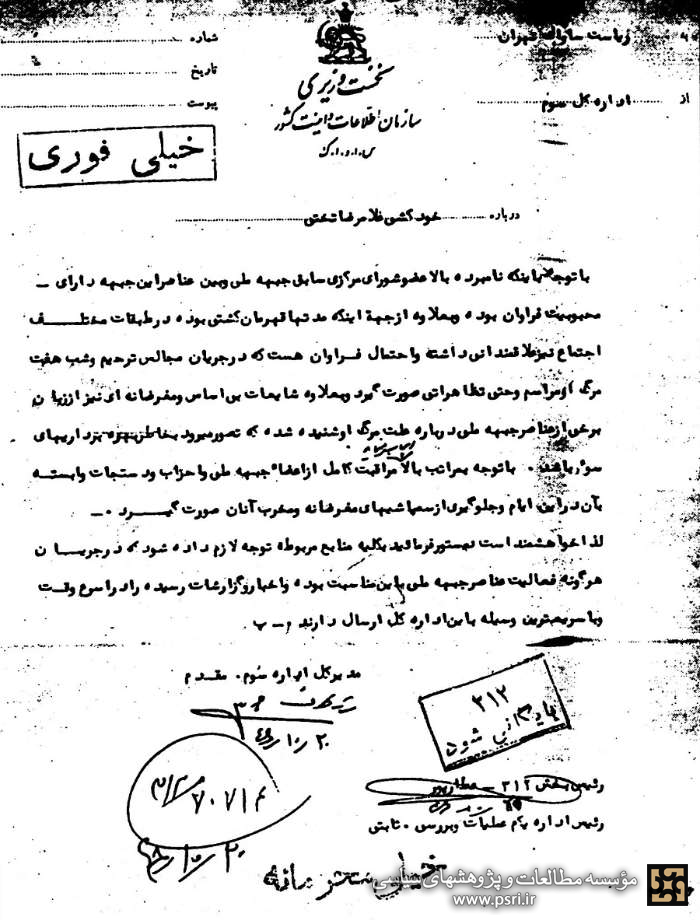 شماره
تاریخ
پیوست
نخست وزیری
سازمان اطلاعات و امنیت کشور
س.ا.و.ا.ک
ریاست ساواک تهران
از اداره کل سوم
خیلی فوری
درباره خودکشی غلامرضا تختی
با توجه باینکه نامبرده بالا عضو شورای مرکزی سابق جبهه ملی وبین عناصر این جبهه دارای ــ
محبوبیت فراوان بوده وبعلاوه ازجهة اینکه مدتها قهرمان کشتی بوده درطبقات مختلف
اجتماع نیز علاقمندانی داشته واحتمال فراوان هست که درجریان مجالس ترحیم وشب هفت
مرگ او مراسم وحتی تظاهراتی صورت گیرد وبعلاوه شایعات بی اساس ومغرضانه ای نیز اززبان
برخی ازعناصر جبهه ملی درباره علت مرگ او شنیده شده که تصور میرود بخاطر بهره برداریهای
سوء باشد . باتوجه بمراتب بالا مراقبت کامل ازاعضاء جبهه ملی واحزاب ودستجات وابسته
بآن دراین ایام وجلوگیری ازسمپاشیهای مغرضانه ومخرب آنان صورت گیرد . ــ
لذا خواهشمند است دستور فرمائید بکلیه منابع مربوطه توجه لازم داده شود که درجریان
هرگونه فعالیت عناصر جبهه ملی باین مناسبت بوده واخبار وگزارشات رسیده رادر اسرع وقت
وباسریعترین وسیله باین اداره کل ارسال دارند .
مدیرکل اداره سوم . مقدم
۲۰/۱۰/۴۶
۳۱۲
بایگانی شود
رئیس بخش ۳۱۲ ــ عطارپور
رئیس اداره یکم عملیات وبررسی . ثابتی
۷۰۷۱۴
مؤسسه مطالعات و پژوهشهای سیاسی
www.psri.ir